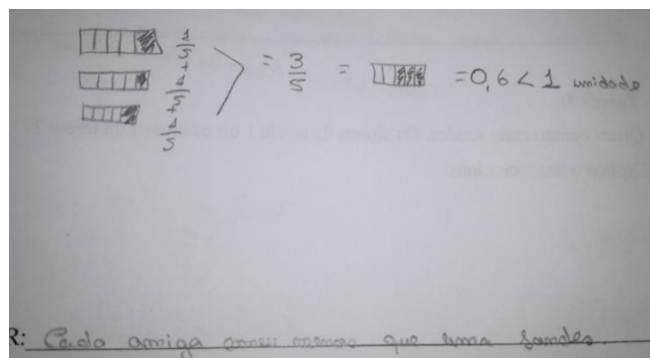 1/5 + 1/5 + 1/5 = 3/5 = = 0,6 < 1 unidade
R: Cada amiga comeu menos que uma sandes.